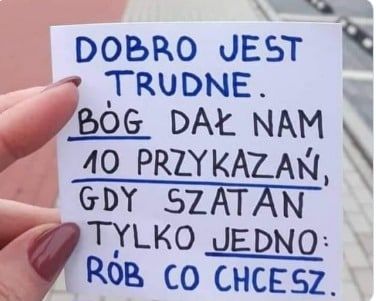 DOBRO JEST
TRUDNE.
BÓG DAŁ NAM
10 PRZYKAZAŃ,
GDY SZATAN
TYLKO JEDNO:
RÓB CO CHCESZ.